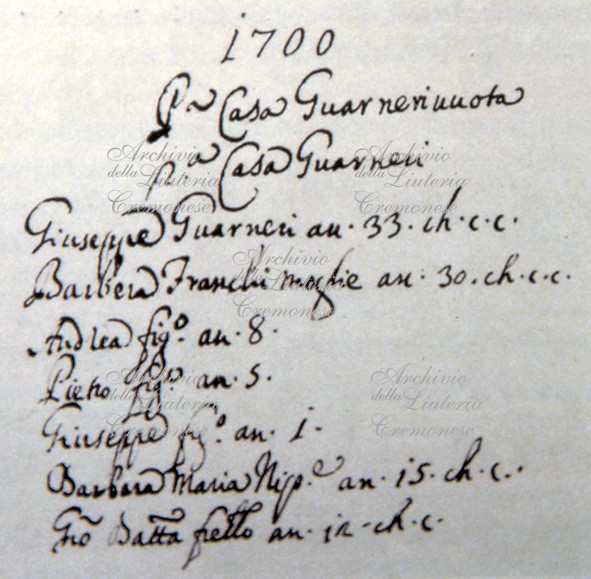 1700
P.a Casa Guarneri vuota
P.a Casa Guarneri
Giuseppe Guarneri an. 33. ch. c. c.
Barbera Franchi moglie an. 30. ch. c. c.
Andrea fig.o an. 8.
Pietro fig.o an. 5.
Giuseppe fig.o an. 1.
Barbara Maria Nip.e an. 15. ch. c.
Gio Batta frello an. 12. ch. c.
Archivio
della
Liuteria
Cremonese
Archivio
della
Liuteria
Cremonese
Archivio
della
Liuteria
Cremonese
Archivio
della
Liuteria
Cremonese
Archivio
della
Liuteria
Cremonese